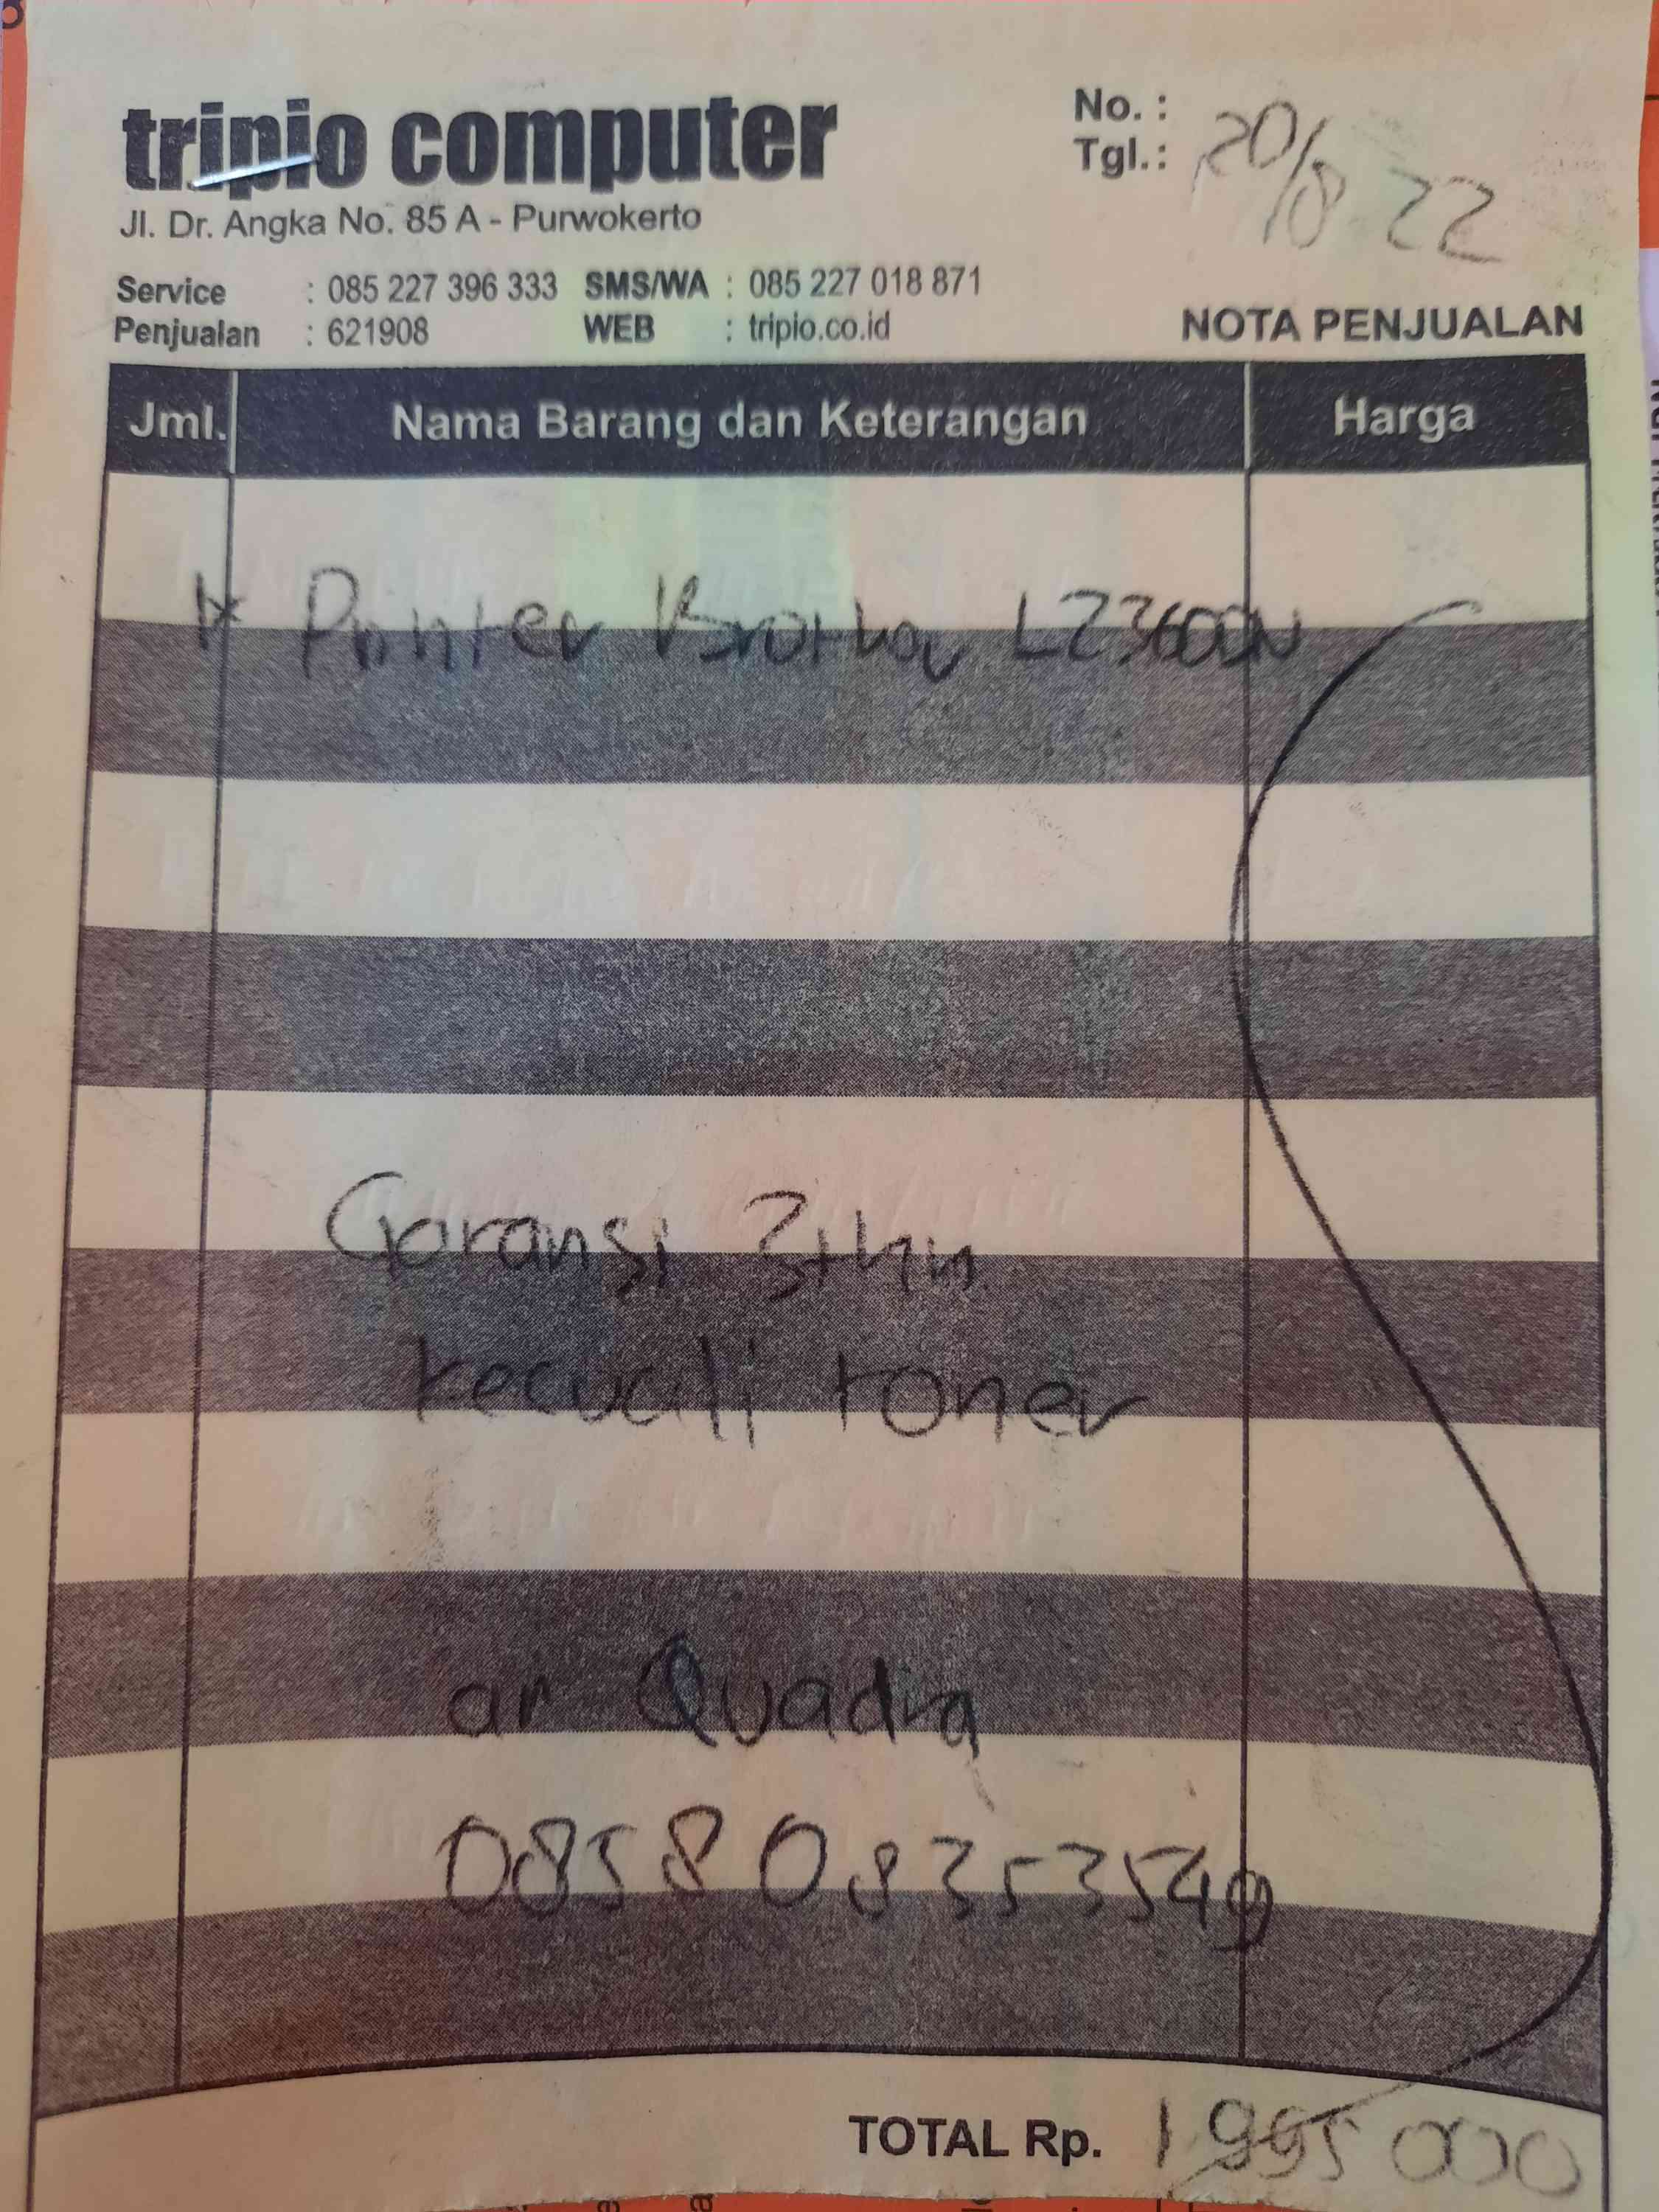 tripio computer
Jl. Dr. Angka No. 85 A - Purwokerto
No. :
Tgl. : 20/8 22
Service : 085 227 396 333 SMS/WA : 085 227 018 871
Penjualan : 621908 WEB : tripio.co.id
NOTA PENJUALAN
Jml. Nama Barang dan Keterangan Harga
1x Printer Brother L2360DN
Garansi 3thn
kecuali toner
an Quadra
085808353549
TOTAL Rp. 1995000